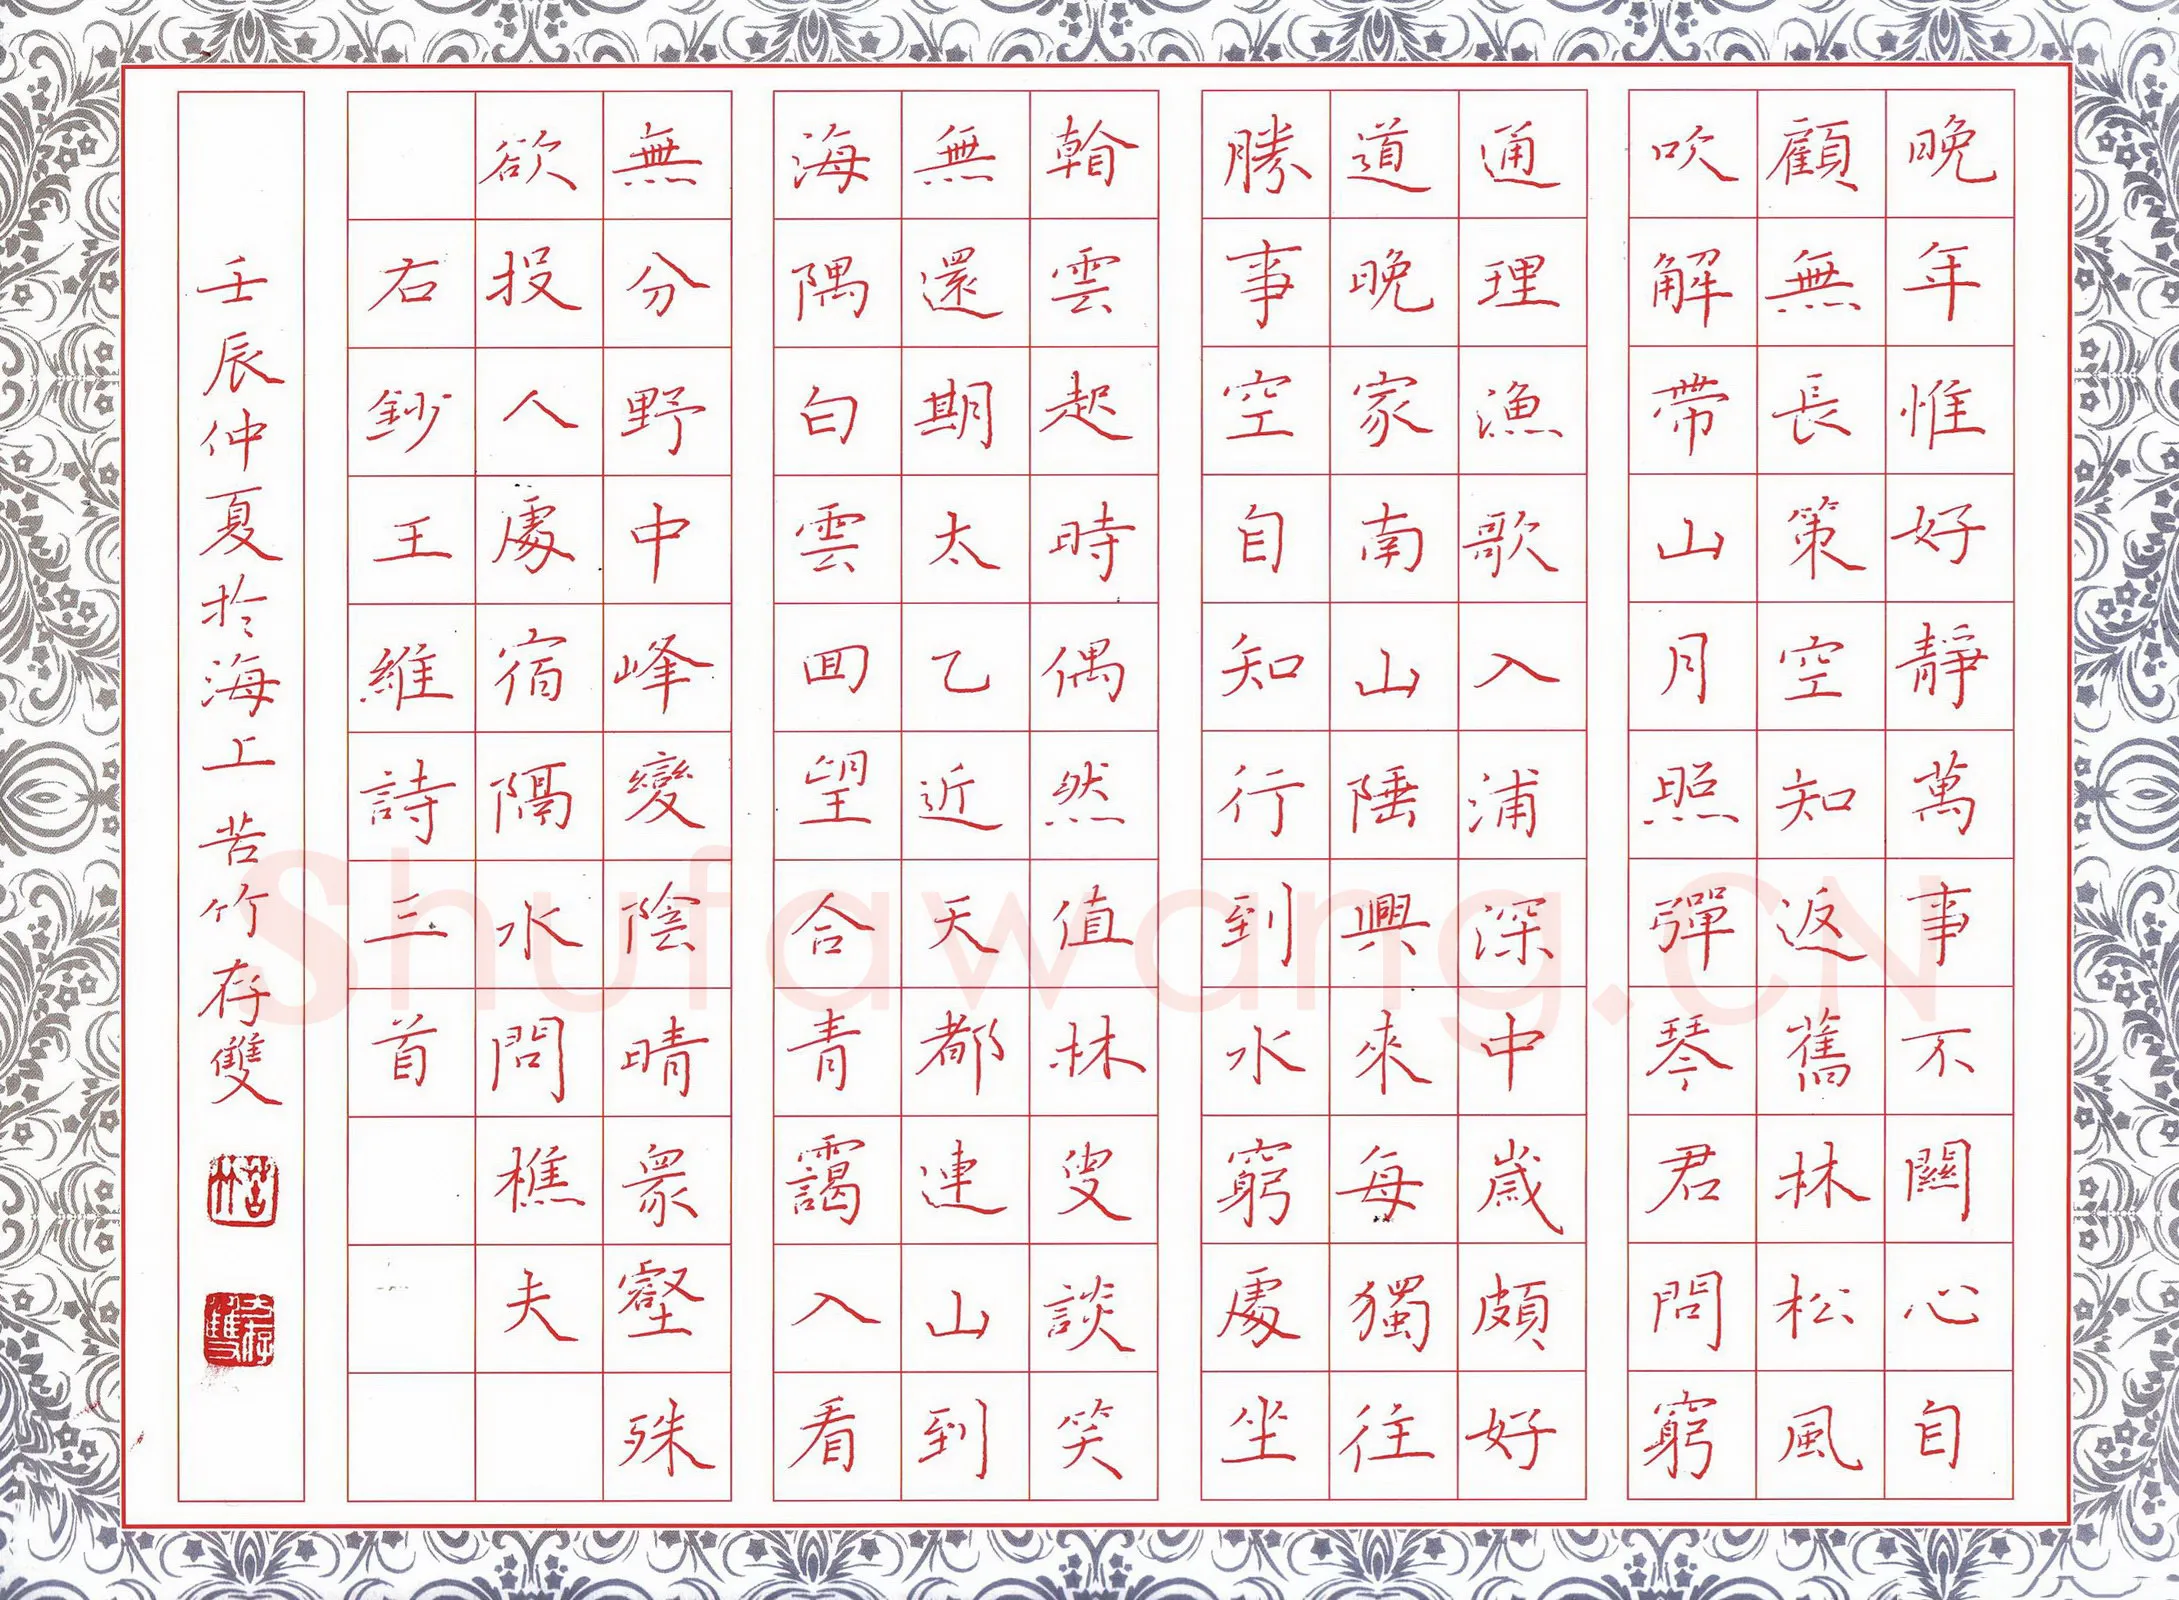 晚年惟好靜萬事不關心自
顧無長策空知返舊林松風
吹解帶山月照彈琴君問窮
通理漁歌入浦深中歲頗好
道晚家南山陲興來每獨往
勝事空自知行到水窮處坐
雲起時偶然值林叟談笑
無還期太乙近天都連山到
海隅白雲囬望合青靄入看
無分野中峰變陰晴眾壑殊
欲投人處宿隔水問樵夫
右鈔王維詩三首
壬辰仲夏於海上 苦竹存雙
Shufawang.CN